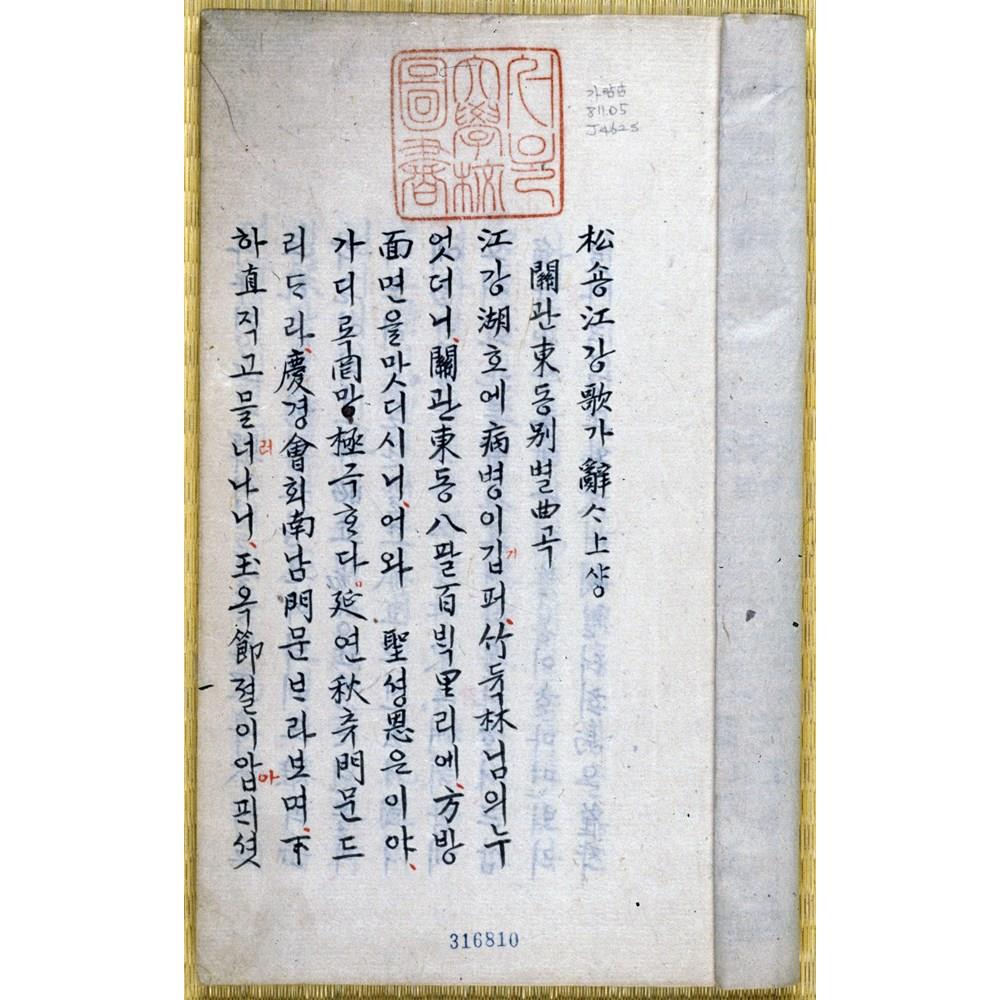 서울
大學校
圖書
가람古
811.05
J462s
松숑江강歌가辭ᄉᆞ上샹
關관東동別별曲곡
江강湖호에病병이깁퍼、竹듁林님의누
기
엇더니、關관東동八팔百ᄇᆡᆨ里리에、方방
面면을맛디시니、어와、聖셩恩은이야、
가디록罔망極극ᄒᆞ다。延연秋츄門문드
리ᄃᆞ라、慶경會회南남門문ᄇᆞ라보며、下
하直직고믈너나니、玉옥節졀이압ᄑᆡ셧
러
아
316810